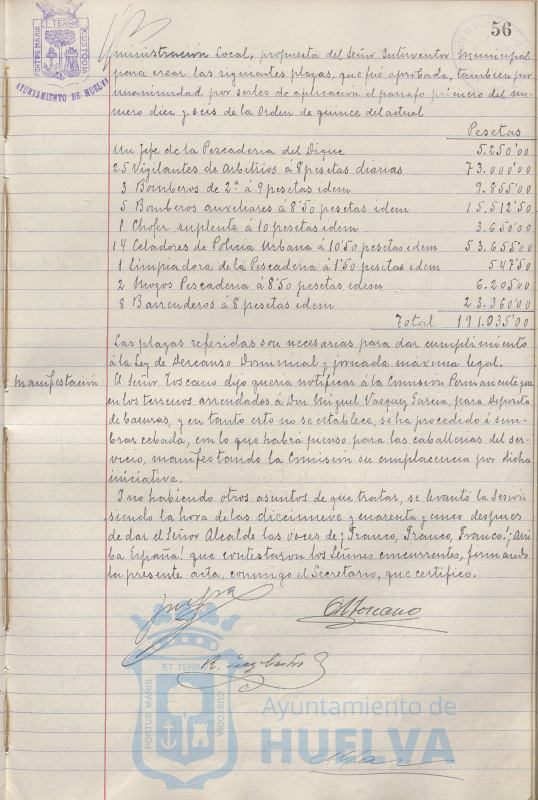 56
PORTUS MARIS ET TERRAE CUSTODIA
AYUNTAMIENTO DE HUELVA
ministración Local, propuesta del Señor Interventor Municipal
para crear las siguientes plazas, que fué aprobada, tambien por
unanimidad por serles de aplicación el párrafo primero del nú-
mero diez y seis de la Orden de quince del actual
Pesetas
Un Jefe de la Pescaderia del Dique 5.250'00
25 Vigilantes de Arbitrios á 8 pesetas diarias 73.000'00
3 Bomberos de 2ª á 9 pesetas idem 9.855'00
5 Bomberos auxiliares á 8'50 pesetas idem 15.512'50
1 Chofer suplente á 10 pesetas idem 3.650'00
14 Celadores de Policia Urbana á 10'50 pesetas idem 53.655'00
1 Limpiadora de la Pescaderia á 1'50 pesetas idem 547'50
2 Mozos Pescaderia á 8'50 pesetas idem 6.205'00
8 Barrenderos á 8 pesetas idem 23.360'00
Total 191.035'00
Las plazas referidas son necesarias para dar cumplimiento
á la Ley de Descanso Dominical y jornada máxima legal.
Manifestación El Señor Toscano dijo queria notificar á la Comisión Permanente que
en los terrenos arrendados á Don Miguel Vazquez Garcia, para Deposito
de basuras, y en tanto esto no se establece, se ha procedido á sem-
brar cebada, con lo que habrá pienso para las caballerias del ser-
vicio, manifestando la Comisión su complacencia por dicha
iniciativa.
I no habiendo otros asuntos de que tratar, se levantó la Sesión
siendo la hora de las diecinueve y cuarenta y cinco despues
de dar el Señor Alcalde las voces de ¡Franco, Franco, Franco! ¡Arri-
ba España! que contestaron los Señores concurrentes, firmando
la presente acta, conmigo el Secretario, que certifico.
Toscano
PORTUS MARIS ET TERRAE CUSTODIA
Ayuntamiento de
HUELVA